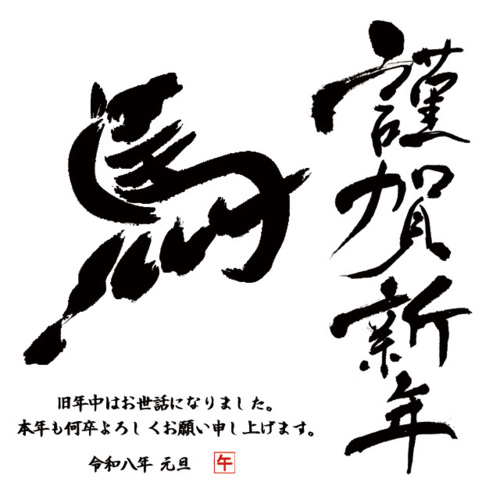 謹賀新年
馬
旧年中はお世話になりました。
本年も何卒よろしくお願い申し上げます。
令和八年 元旦 午